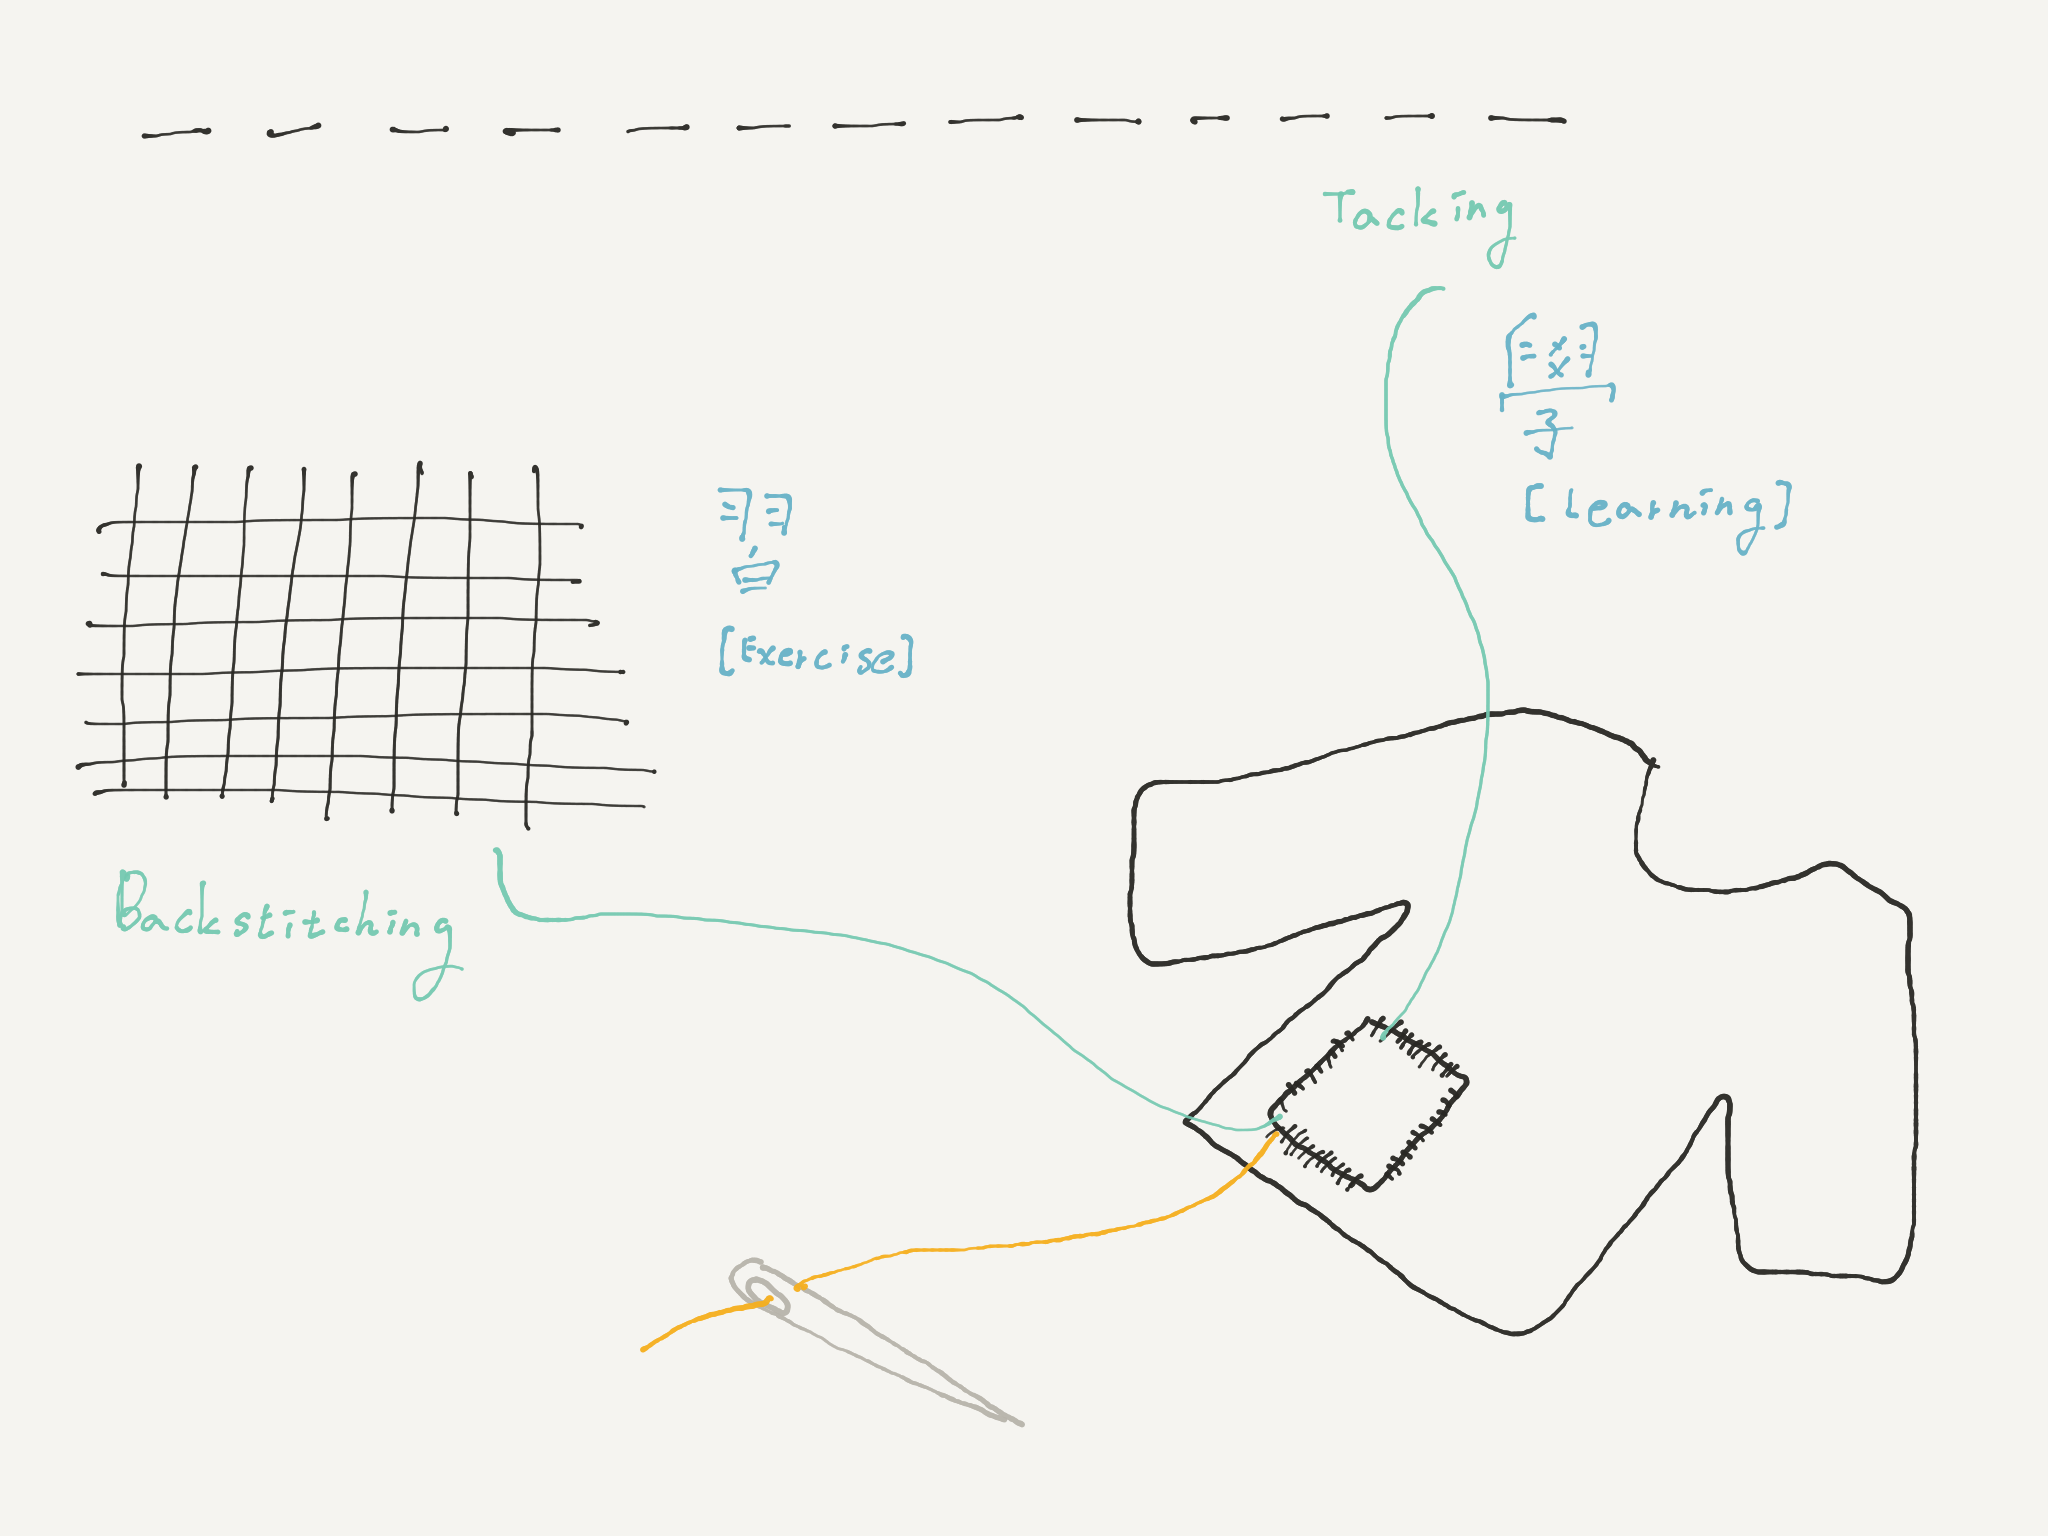 Tacking
學
[Learning]
習
[Exercise]
Backstitching